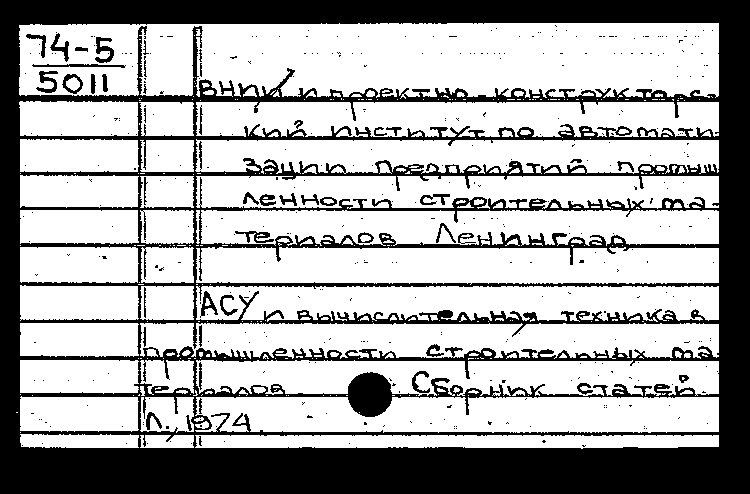 74-5
5011
ВНИИ и проектно-конструкторс-
кий институт по автомати-
зации предприятий промыш
ленности строительных ма-
териалов Ленинград
АСУ и вычислительная техника в
промышленности строительных ма-
териалов Сборник статей
Л., 1974.